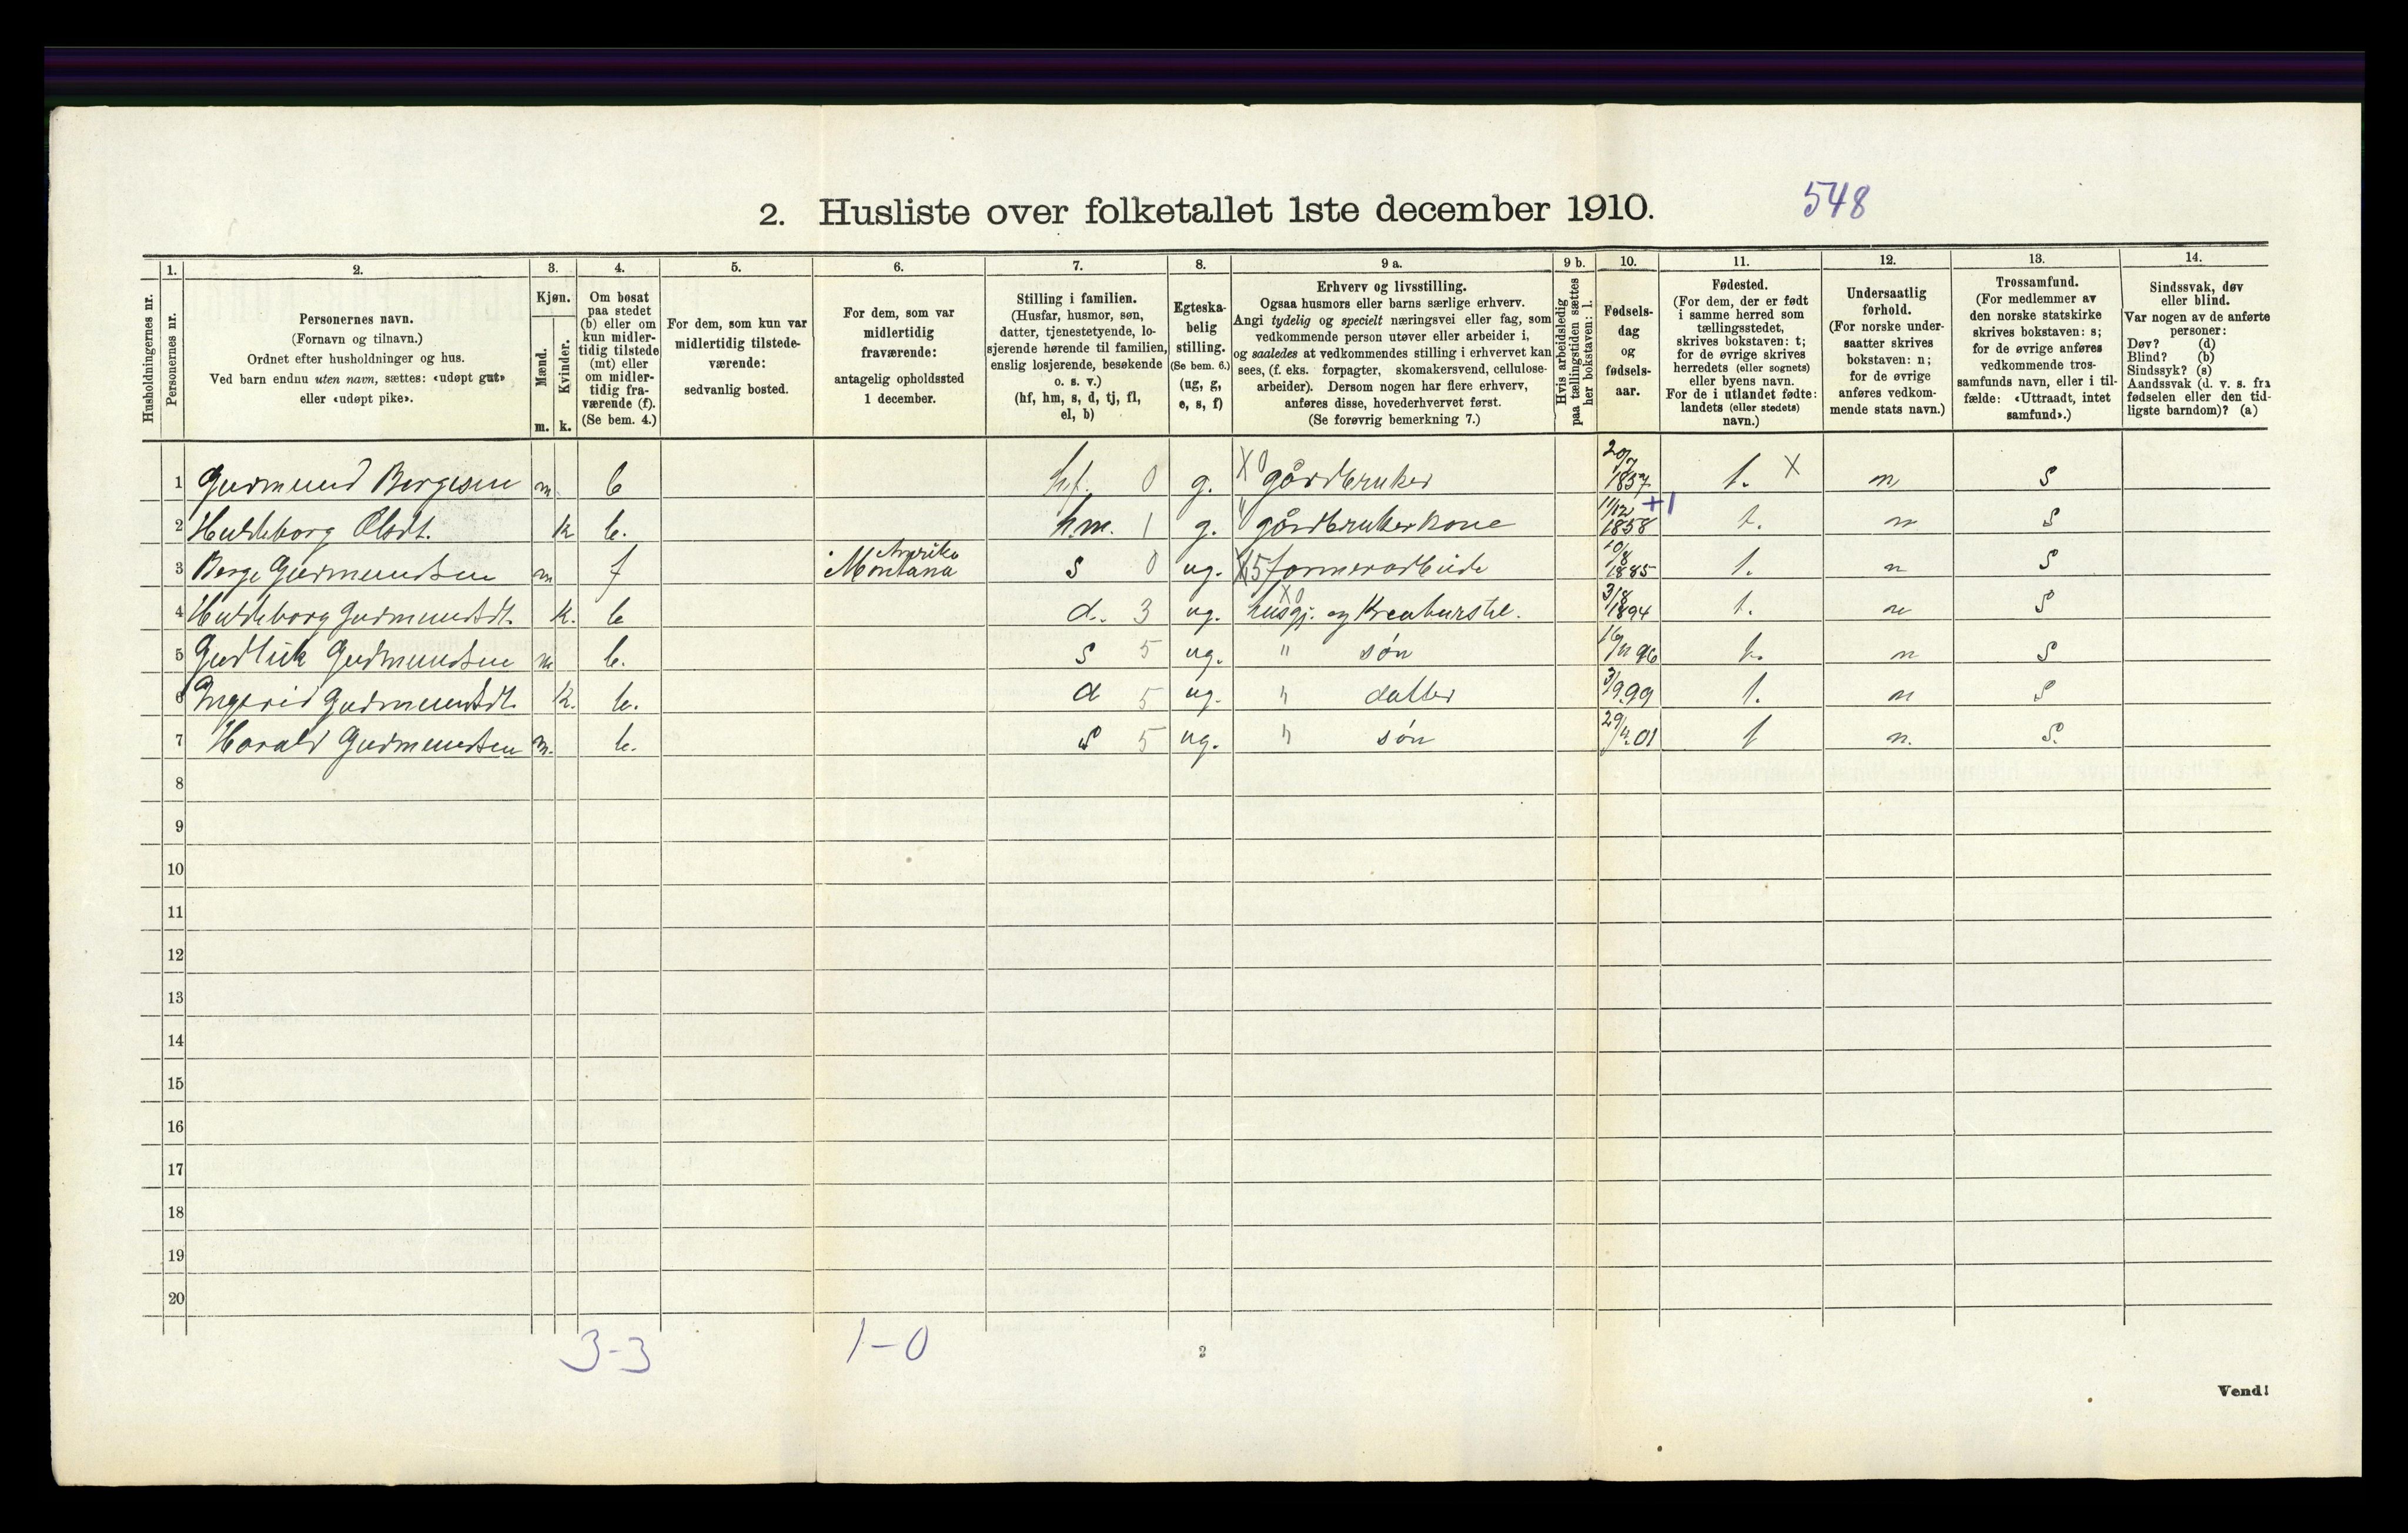 548
2. Husliste over folketallet 1ste december 1910.
Husholdningernes nr.
1.
Personernes nr.
2.
Personernes navn.
(Fornavn og tilnavn.)
Ordnet efter husholdninger og hus.
Ved barn endnu uten navn, sættes: «udøpt gut»
eller «udøpt pike».
3.
Kjøn.
Mænd.
Kvinder.
m. k.
4.
Om bosat
paa stedet
(b) eller om
kun midler-
tidig tilstede
(mt) eller
om midler-
tidig fra-
værende (f).
(Se bem. 4.)
5.
For dem, som kun var
midlertidig tilstede-
værende:
sedvanlig bosted.
6.
For dem, som var
midlertidig
fraværende:
antagelig opholdssted
1 december.
7.
Stilling i familien.
(Husfar, husmor, søn,
datter, tjenestetyende, lo-
sjerende hørende til familien,
enslig losjerende, besøkende
o. s. v.)
(hf, hm, s, d, tj, fl,
el, b)
8.
Egteska-
belig
stilling.
(Se bem. 6.)
(ug, g,
e, s, f)
9 a.
Erhverv og livsstilling.
Ogsaa husmors eller barns særlige erhverv.
Angi tydelig og specielt næringsvei eller fag, som
vedkommende person utøver eller arbeider i,
og saaledes at vedkommendes stilling i erhvervet kan
sees, (f. eks. forpagter, skomakersvend, cellulose-
arbeider). Dersom nogen har flere erhverv,
anføres disse, hovederhvervet først.
(Se forøvrig bemerkning 7.)
9 b.
Hvis arbeidsledig
paa tællingstiden sættes
her bokstaven: l.
10.
Fødsels-
dag
og
fødsels-
aar.
11.
Fødested.
(For dem, der er født
i samme herred som
tællingsstedet,
skrives bokstaven: t;
for de øvrige skrives
herredets (eller sognets)
eller byens navn.
For de i utlandet fødte:
landets (eller stedets)
navn.)
12.
Undersaatlig
forhold.
(For norske under-
saatter skrives
bokstaven: n;
for de øvrige
anføres vedkom-
mende stats navn.)
13.
Trossamfund.
(For medlemmer av
den norske statskirke
skrives bokstaven: s;
for de øvrige anføres
vedkommende tros-
samfunds navn, eller i til-
fælde: «Uttraadt, intet
samfund».)
14.
Sindssvak, døv
eller blind.
Var nogen av de anførte
personer:
Døv? (d)
Blind? (b)
Sindssyk? (s)
Aandssvak (d. v. s. fra
fødselen eller den tid-
ligste barndom)? (a)
1 Gudmund Bergesen m b hf. 0 g. X 0 gårdbruker 20/7 1857 t. X n s
2 Huldeborg Olsdt. k b. hm. 1 g. " gårdbrukerkone 11/12 1858 +1 t. n s
3 Berge Gudmundsen m f Amerika Montana s 0 ug. farmerarbeide 10/8 1885 t. n s
4 Huldeborg Gudmundsdt. k. b d. 3 ug. X0 husgj. og kreaturstel. 3/8 1894 t. n s
5 Gudleik Gudmundsen m b. s 5 ug. " søn 16/11 96 t. n s
6 Ingerid Gudmundsdt. k. b. d 5 ug. " datter 3/9 99 t. n s
7 Harald Gudmundsen m. b. s 5 ug. " søn 29/4 01 t n. s.
8
9
10
11
12
13
14
15
16
17
18
19
20
3-3 1-0
2
Vend!